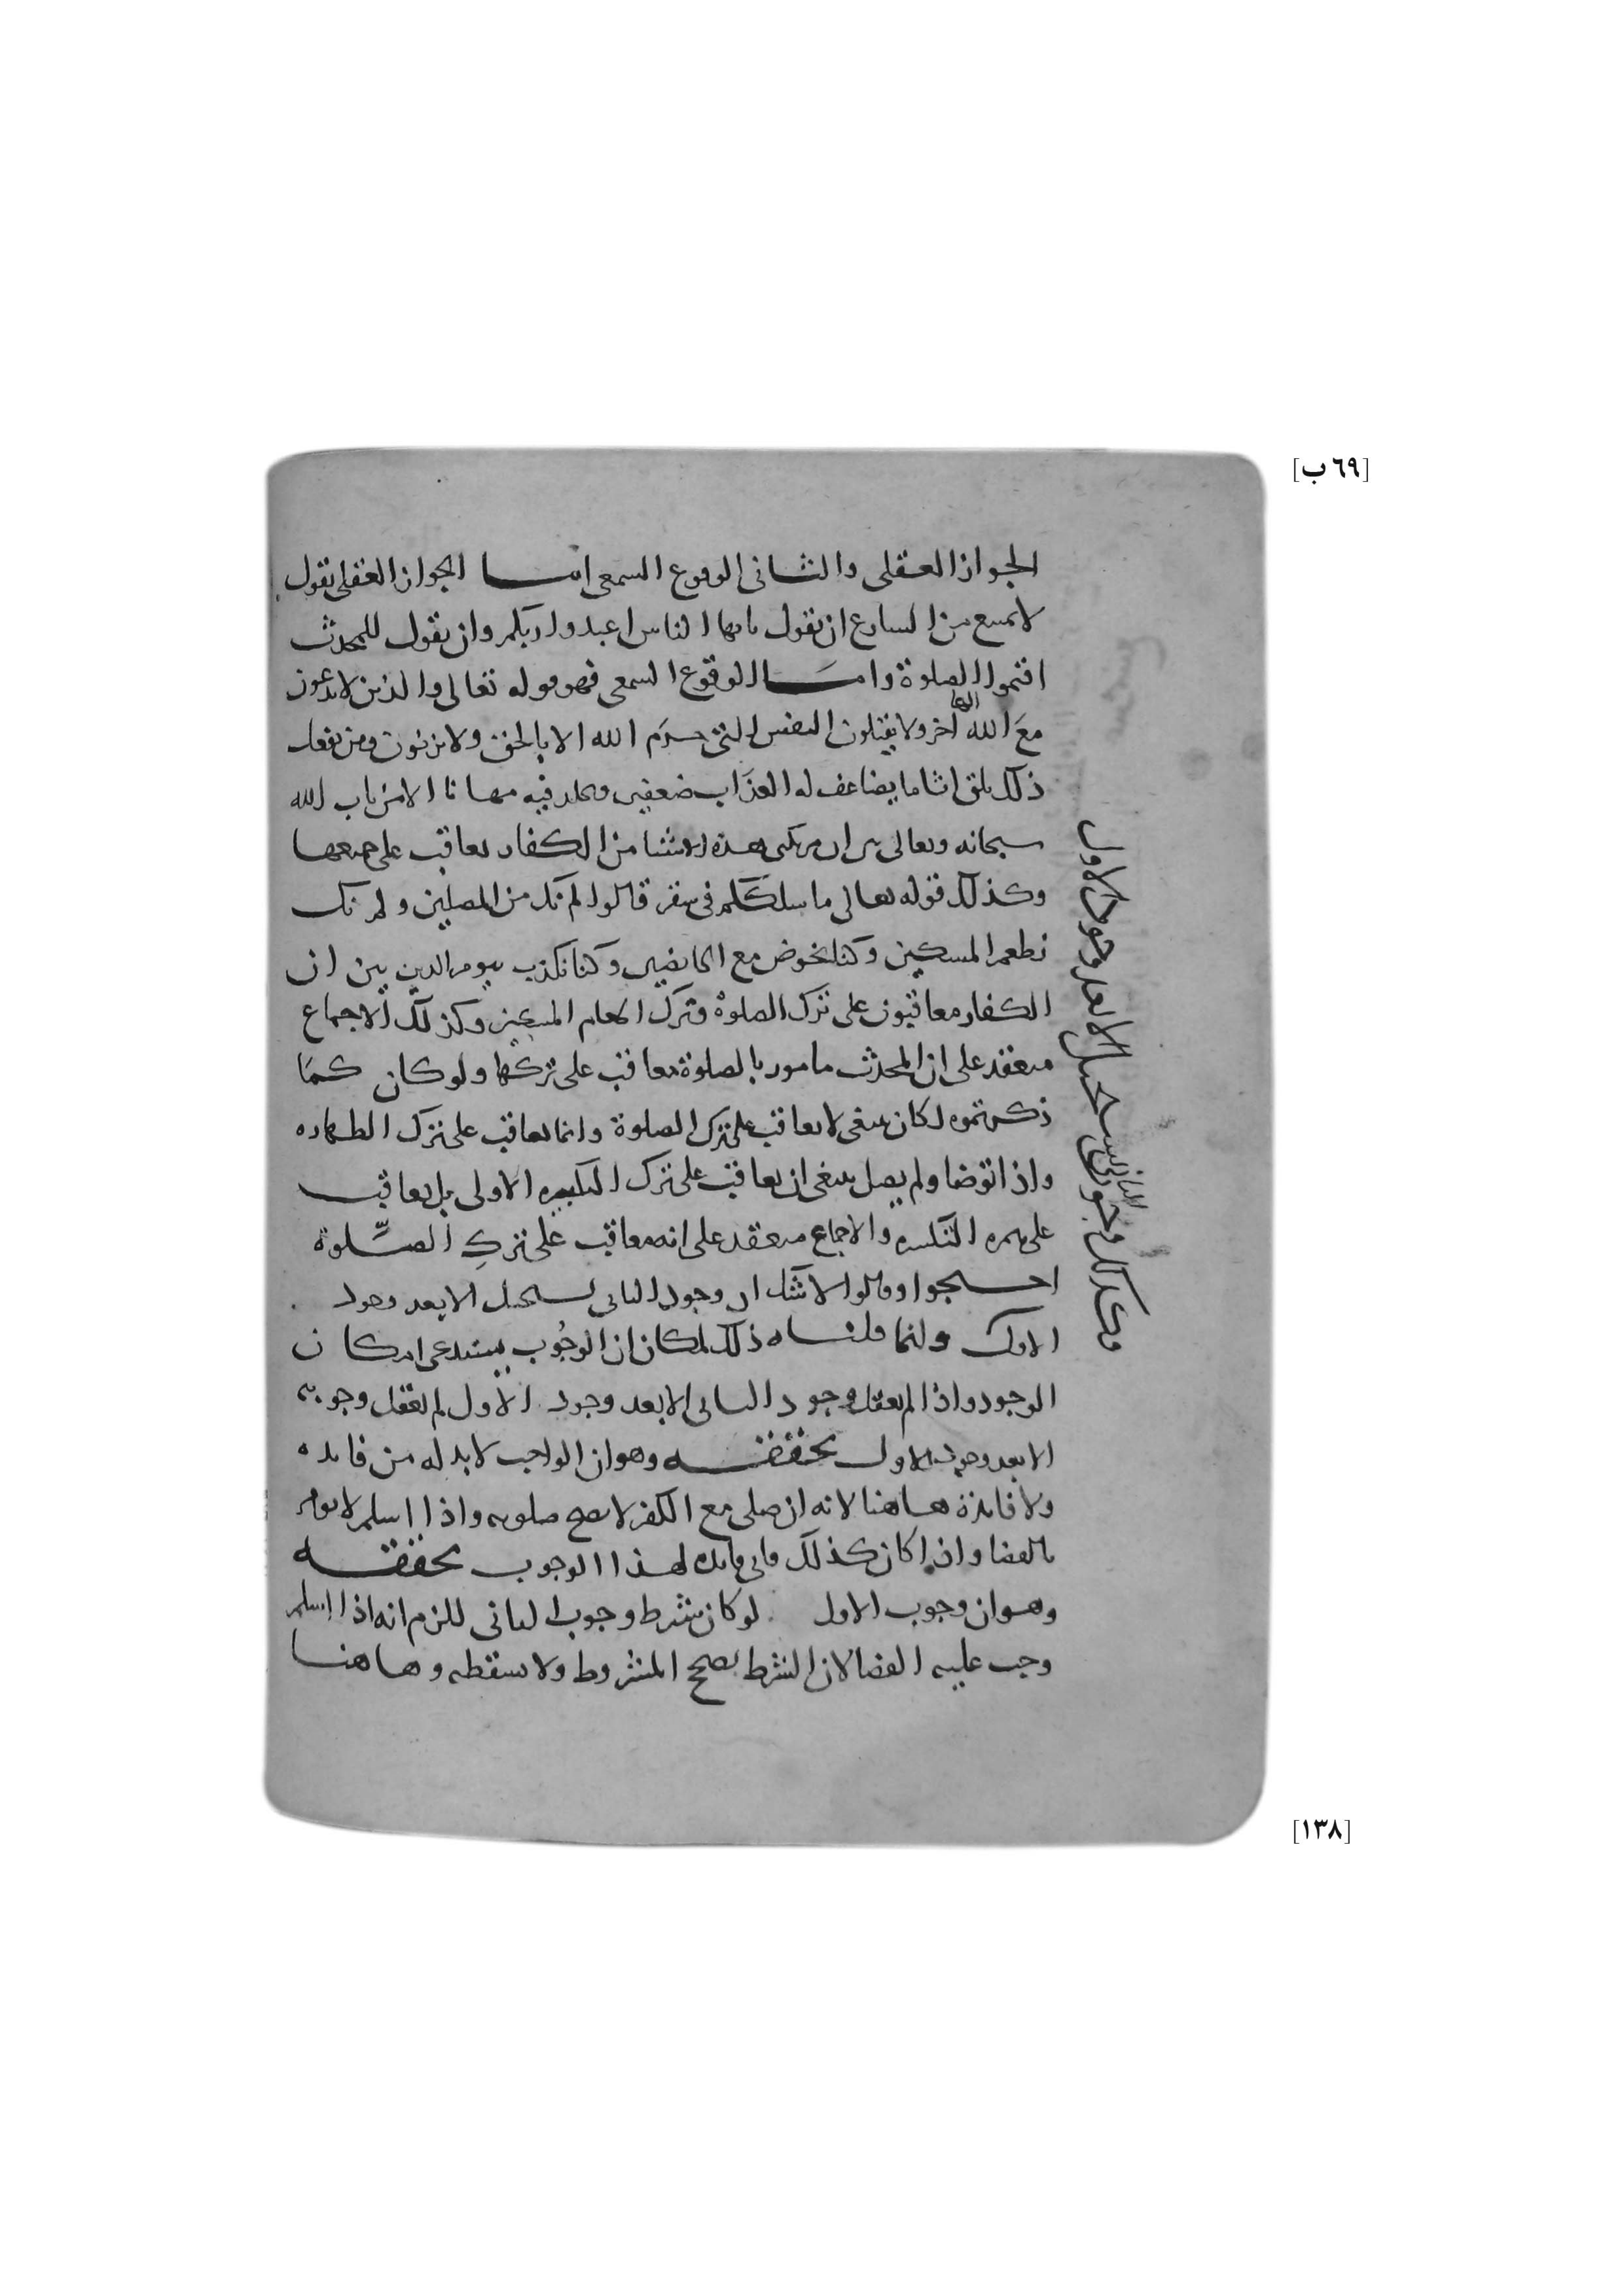 [٦٩ ب]
الجواز العقلى والثانى الوقوع السمعى اما الجواز العقلى نقول
لا يمتنع من الشارع ان يقول يا ايها الناس اعبدوا ربكم وان يقول للمحدث
اقيموا الصلوة واما الوقوع السمعى فهو قوله تعالى والذين لا يدعون
مع الله الها اخر ولا يقتلون النفس التى حرم الله الا بالحق ولا يزنون ومن يفعل
ذلك يلق اثاما يضاعف له العذاب ضعفين ويخلد فيه مهانا الا من تاب الله
سبحانه وتعالى بين ان مرتكب هذه الاشيا من الكفار يعاقب على جميعها
وكذلك قوله تعالى ما سلككم فى سقر قالوا لم نك من المصلين ولم نك
نطعم المسكين وكنا نخوض مع الخايضين وكنا نكذب بيوم الدين بين ان
الكفار معاقبون على ترك الصلوة وترك اطعام المسكين وكذلك الاجماع
منعقد على ان المحدث مامور بالصلوة معاقب على تركها ولو كان كما
ذكرتموه لكان ينبغى لا يعاقب على ترك الصلوة وانما يعاقب على ترك الطهاره
واذا توضا ولم يصل ينبغى ان يعاقب على ترك التكبيره الاولى بل يعاقب
على همزه التكبيره والاجماع منعقد على انه معاقب على ترك الصلوة
احتجوا وقالوا لا شك ان وجود الثانى يستحيل الا بعد وجود
الاول وانما قلنا ذلك لمكان ان الوجوب يستدعى امكان
الوجود واذا لم يعقل وجود الثانى الا بعد وجود الاول لم يعقل وجوبه
الا بعد وجود الاول تحققه وهو ان الواجب لا بد له من فايده
ولا فايدة هاهنا لانه ان صلى مع الكفر لا يصح صلوته واذا اسلم لا يومر
بالقضا واذا كان كذلك فاى فايده لهذا الوجوب تحققه
وهو ان وجوب الاول لو كان شرط وجوب الثانى للزم انه اذا اسلم
وجب عليه القضا لان الشرط يصحح المشروط ولا يسقطه وهاهنا
وكذلك وجوب الثانى يستحيل الا بعد وجود الاول
[١٣٨]